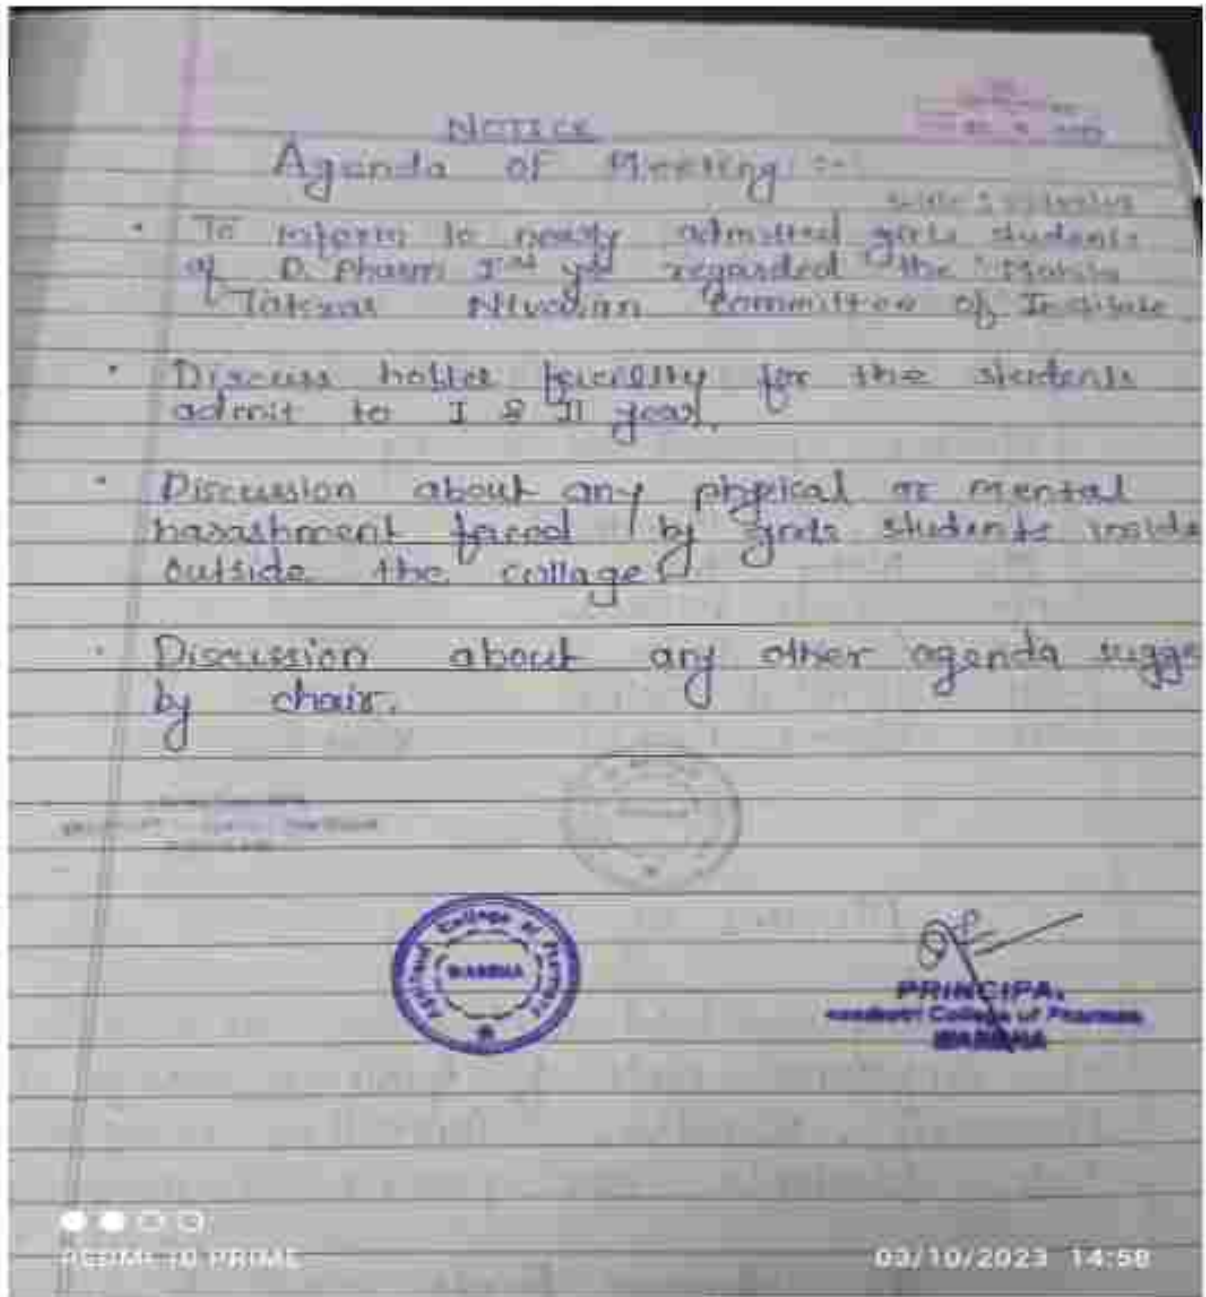 NOTICE
Agenda of Meeting :-
To inform to newly admitted girls students
of D. Pharm Ist yr regarded the Mahila
Takrar Nivaran Committee of Institute.
Discuss facility for the students
admit to I & II year.
Discussion about any physical or mental
harashment faced by girls students inside
outside the collage.
Discussion about any other agenda sugge
by chair.
College of
WARDHA
PRINCIPAL
College of
WARDHA
REDMI 10 PRIME
03/10/2023 14:58